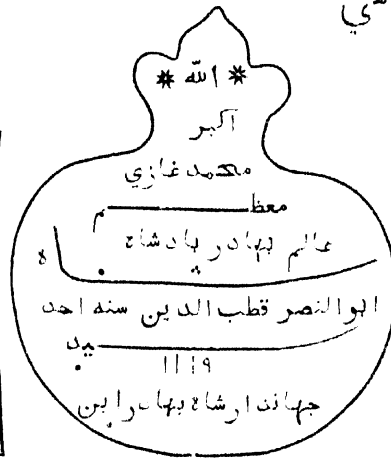 ي
* الله *
اكبر
محمد غازي
معظـــــم
عالم بهادر بادشاه
ه
ابو النصر قطب الدين سنه احد
ـــــيد
١١١٩
جهاندار شاه بهادر ابن